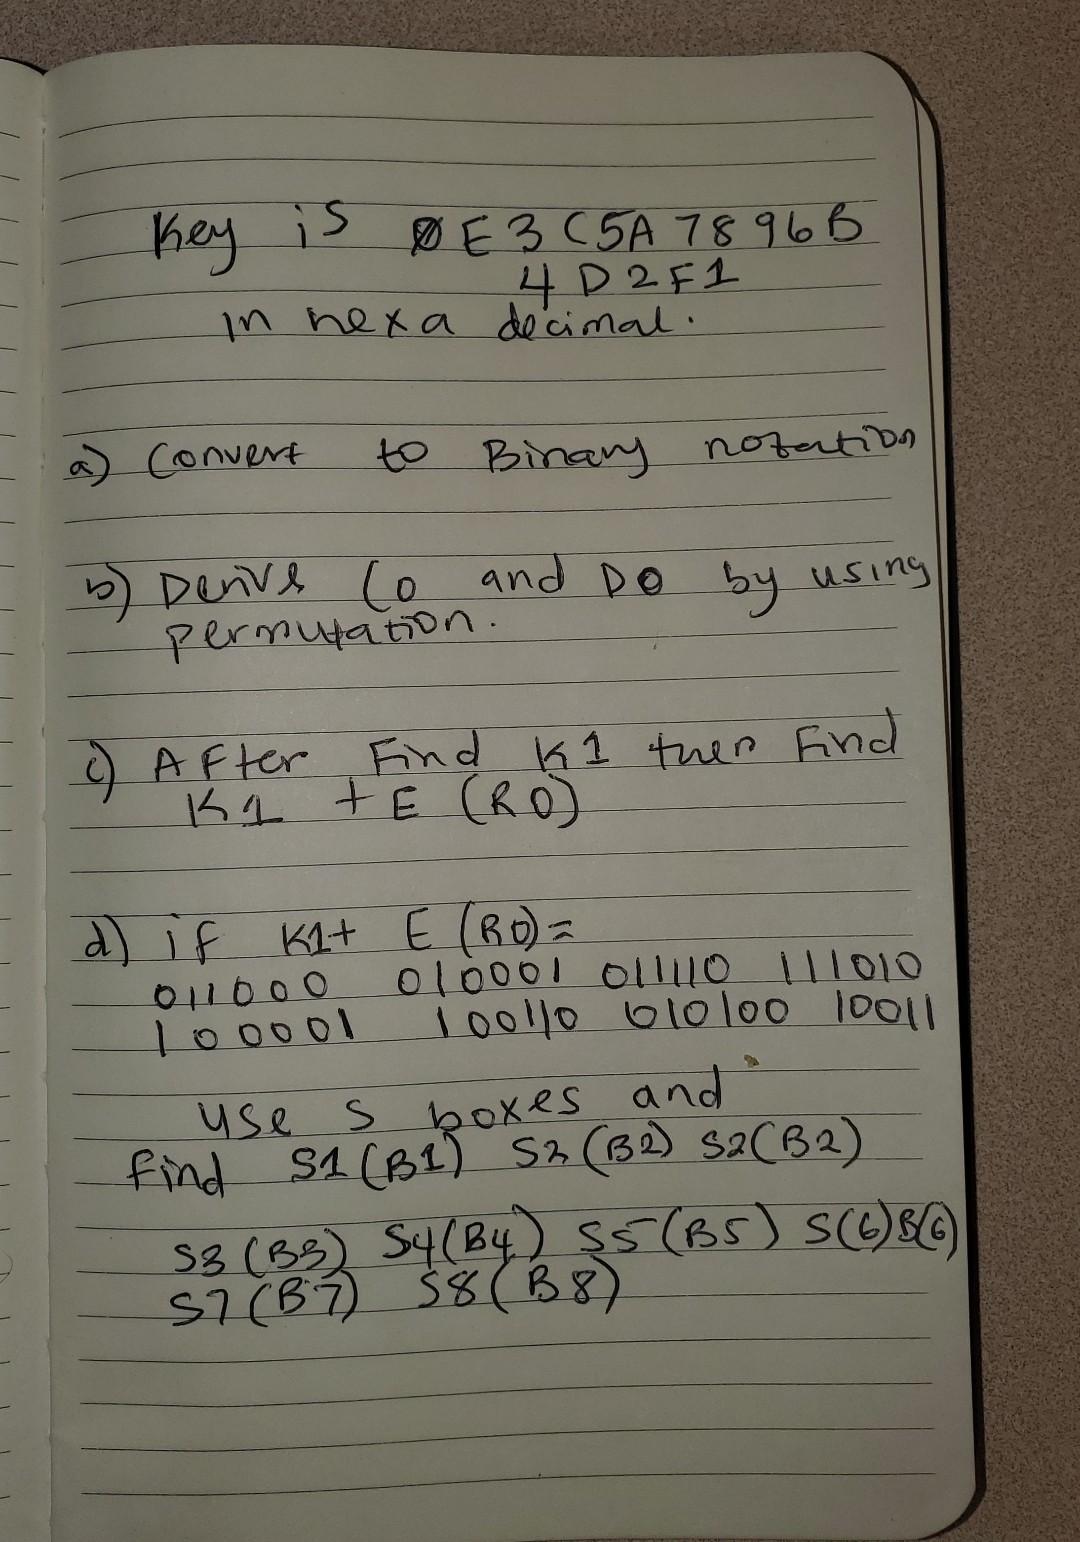 Key is 0E3C5A7896B
4D2F1
in hexa decimal.
a) Convert to Binary notation
b) Derive Co and D0 by using
permutation.
c) After Find K1 then Find
K1 + E (R0)
d) if K1+ E (R0)=
011000 010001 011110 111010
100001 100110 010100 10011
Use S boxes and
find S1(B1) S2(B2) S2(B2)
S3(B3) S4(B4) S5(B5) S(6)B(6)
S7(B7) S8(B8)